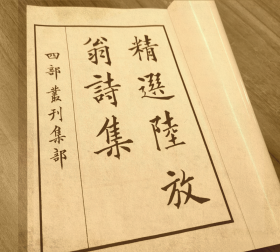 精選陸放
翁詩集
四部叢刊集部